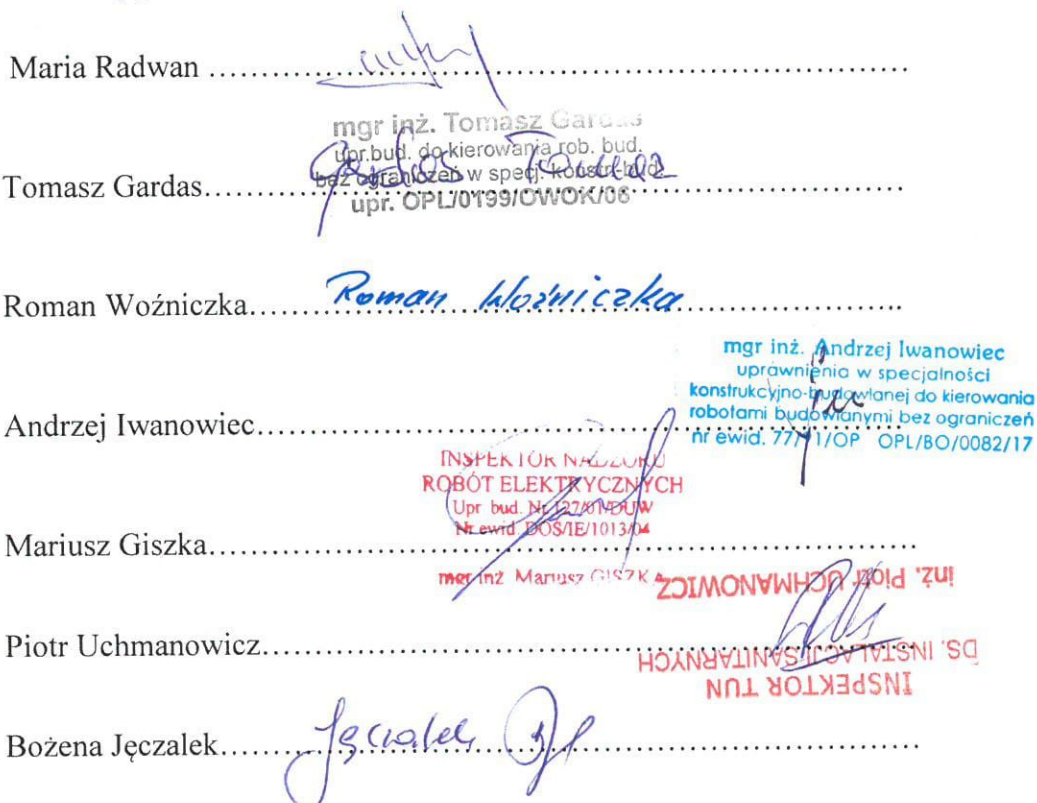 Maria Radwan ..........................................................................
mgr inż. Tomasz Gardas
upr.bud. do kierowania rob. bud.
bez ograniczeń w specj. konstr-bud.
upr. OPL/0199/OWOK/06
Tomasz Gardas.......... Gardas Tomasz ..........
Roman Woźniczka.......... Roman Woźniczka ..........
mgr inż. Andrzej Iwanowiec
uprawnienia w specjalności
konstrukcyjno-budowlanej do kierowania
robotami budowlanymi bez ograniczeń
nr ewid. 77/91/OP OPL/BO/0082/17
Andrzej Iwanowiec..........................................................................
INSPEKTOR NADZORU
ROBÓT ELEKTRYCZNYCH
Upr bud. Nr 127/01/DUW
Nr ewid DOŚ/IE/1013/04
mgr inż Mariusz GISZKA
Mariusz Giszka..........................................................................
inż. Piotr UCHMANOWICZ
DS. INSTALACJI SANITARNYCH
INSPEKTOR TUN
Piotr Uchmanowicz..........................................................................
Bożena Jęczalek.......... Jęczalek ..........